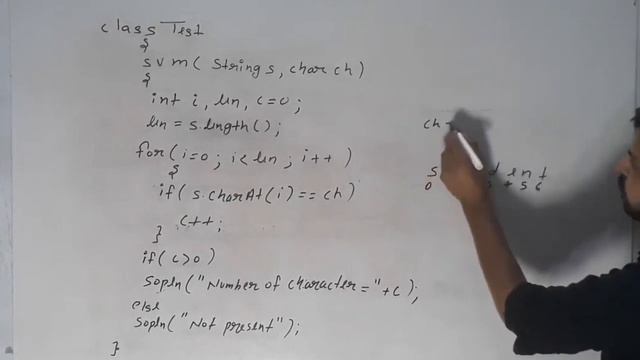 class Test
{
svm( String s, char ch)
{
int i, len, c=0;
len = s.length();
for( i=0 ; i<len ; i++ )
{
if( s.charAt(i) == ch)
c++;
}
if( c>0 )
Sopln("Number of character="+c);
else
Sopln("Not present");
}
ch =
s d e n t
0 4 5 6